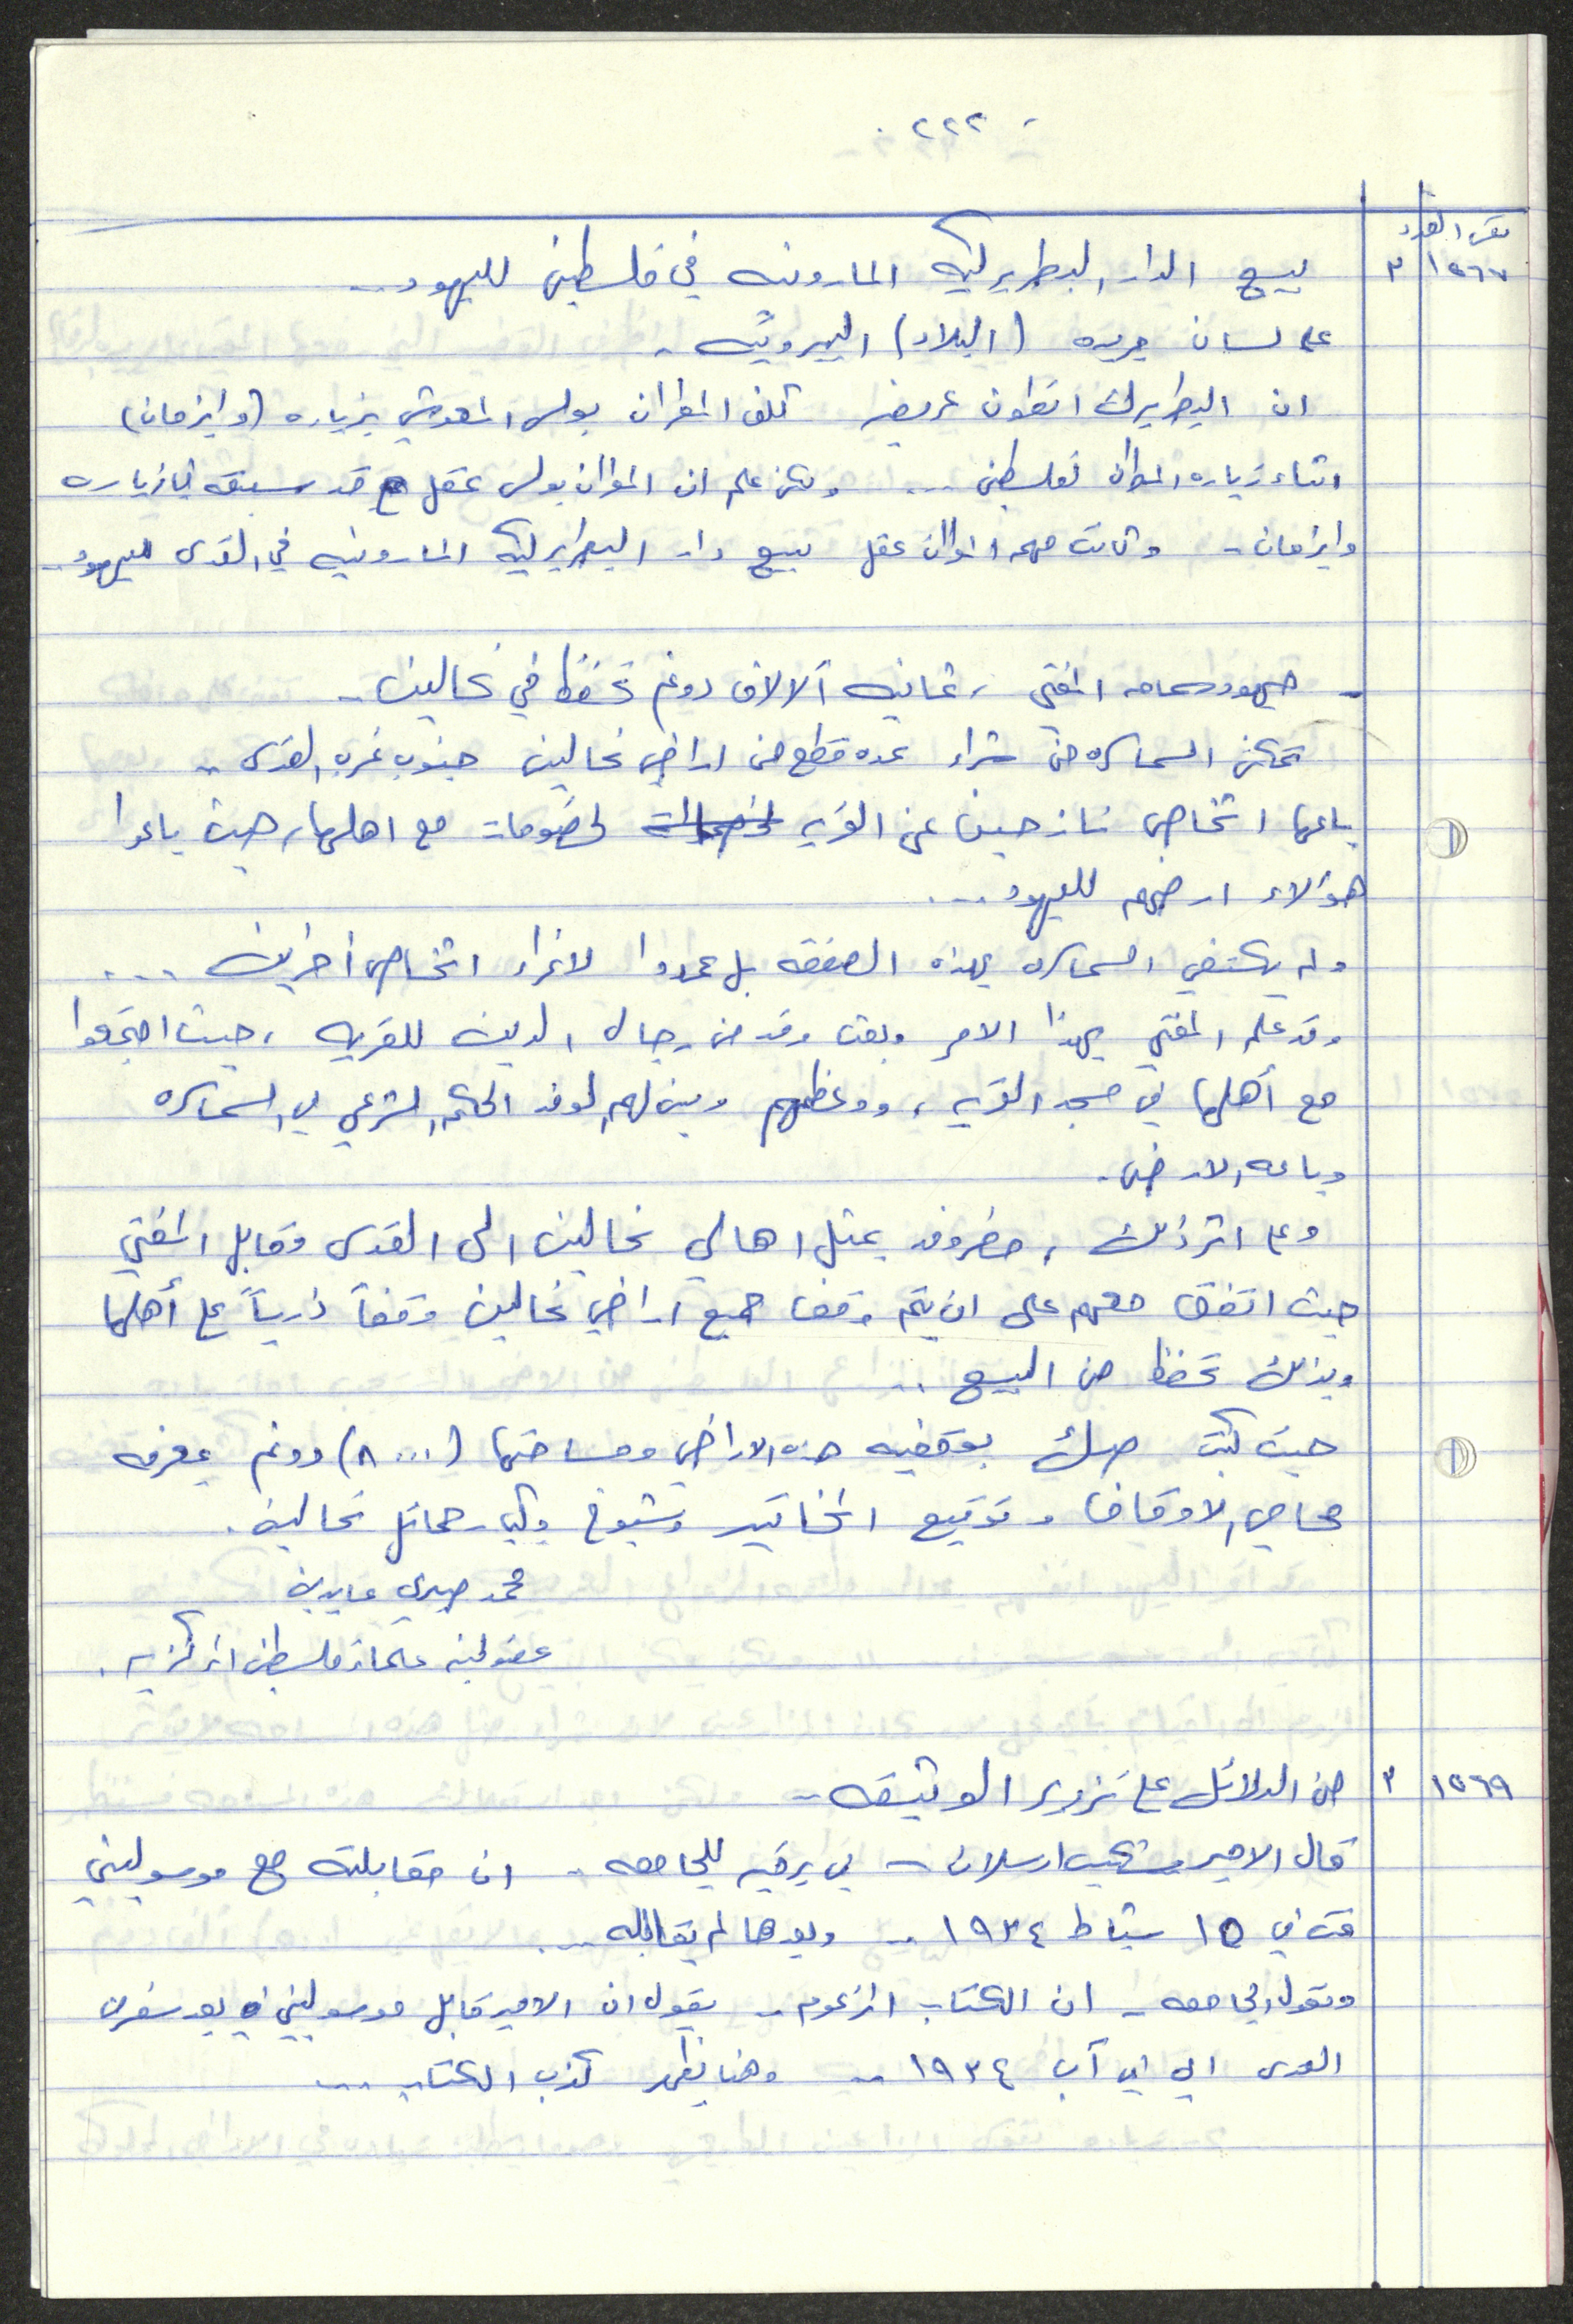 - ٢٢٢ -
نفس العدد
١٥٦٧ ٣ بيع الدار البطريركيه المارونيه في فلسطين لليهود ..
على لسان جريده (البلاد) البيروتيه .
ان البطريرك انطون عريضه كلف المطران بولس المعوشي بزياره (وايزمان)
اثناء زياره المطران لفلسطين ... ولكن علم ان المطران بولس عقل قد سبقه لزياره
وايزمان - وكانت مهمه المطران عقل بيع دار البطريركيه المارونيه في القدس لليهود ..
- جهود سماحه المفتي ، ثمانيه آلالاف دونم تحفظ في نحالين -
تمكن السماسره من شراء عده قطع من اراضي نحالين جنوب غرب القدس ..
باعها اشخاص نازحين عن القريه لخصومات مع اهلها ، حيث باعوا
هؤلاء ارضهم لليهود ...
ولم يكتفي السماسره بهذه الصفقه بل عمدوا لاغراء اشخاص أخرين ...
وقد علم المفتي بهذا الامر وبعث وفد من رجال الدين للقريه ، حيث اجتمعوا
مع أهلها في مسجد القريه ، ووعظهم وبين لهم الوفد الحكم الشرعي في السماسره
وباعه الارض .
وعلى اثر ذلك ، حضر وفد يمثل اهالي نحالين الى القدس وقابل المفتي
حيث اتفق معهم على ان يتم وقف جميع اراضي نحالين وقفاً ذرياً على أهلها
وبذلك تحفظ من البيع ..
حيث كتب صك بوقفيه هذه الاراضي ومساحتها (٨٠٠٠) دونم بمعرفه
محامي الاوقاف وتوقيع المخاتير وشيوخ وكبار حمائل نحالين .
محمد صبري عابدين
عضو لجنه علماء فلسطين المركزيه .
١٥٦٩ ٣ من الدلائل على تزوير الوثيقه -
قال الامير شكيب ارسلان - في برقيه للجامعه - ان مقابلته مع موسوليني
تمت في ١٥ شباط ١٩٣٤ .. وبعدها لم يقابله ...
وتقول الجامعه - ان الكتاب المزعوم .. يقول ان الامير قابل موسوليني بعد سفره
الى في آب ١٩٣٤ .. وهنا يظهر كذب الكتاب ...